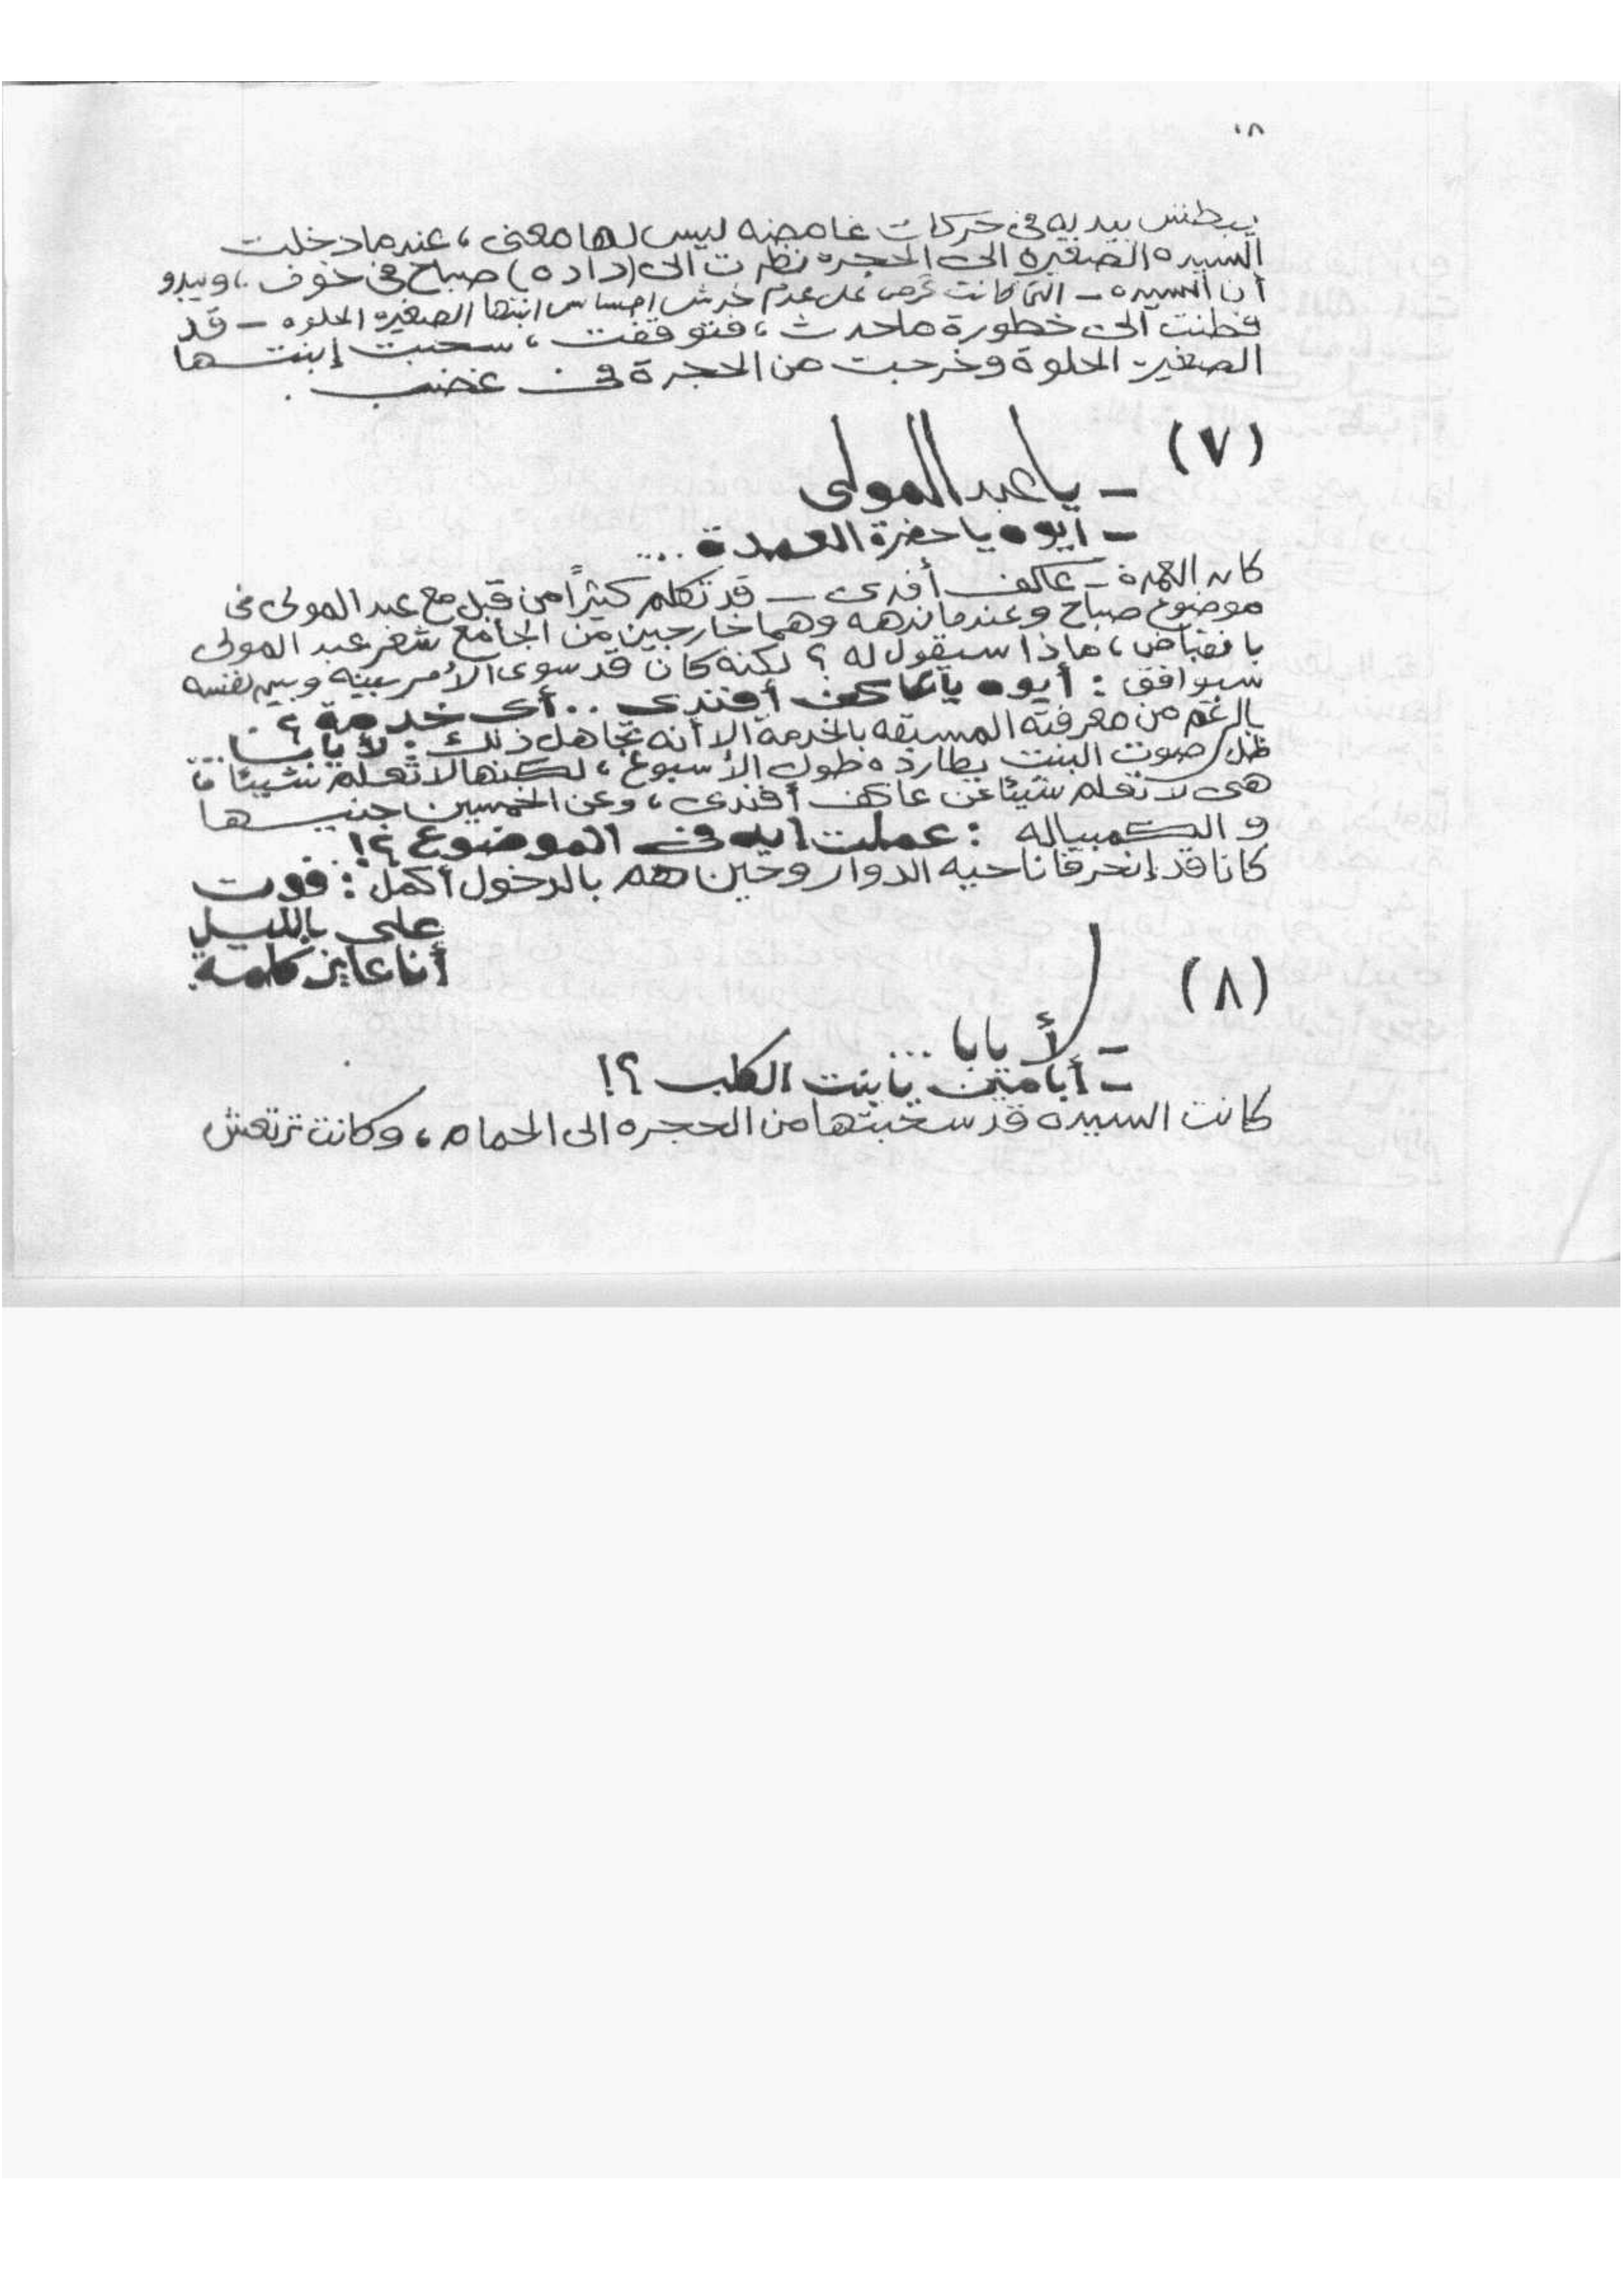 ١٨
يبطش بيديه فى حركات غامضه ليس لها معنى ، عندما دخلت
السيده الصغيره الى الحجره نظرت الى (داده) صباح فى خوف ، ويبدو
أن السيده – التى كانت تحرص على عدم خدش احساس ابنتها الصغيره الحلوه – قد
فطنت الى خطورة ما حدث ، فتوقفت ، سحبت إبنتها
الصغير الحلوة وخرجت من الحجرة فى غضب .
(٧)
– يا عبد المولى
– أيوه يا حضرة العمدة ...
كان العمدة – عاكف أفندى – قد تكلم كثيراً من قبل مع عبد المولى فى
موضوع صباح وعندما ندهه وهما خارجين من الجامع شعر عبد المولى
بانقباض ، ماذا سيقول له ؟ لكنه كان قد سوى الأمر بينه وبين نفسه
سيوافق : أيوه يا عاكف أفندى .. أى خدمة ؟.
بالرغم من معرفته المسبقه بالخدمة الا أنه تجاهل ذلك : لأ يابا ...
ظل صوت البنت يطارده طول الأسبوع ، لكنها لا تعلم شيئا ،
هى لا تعلم شيئا عن عاكف أفندى ، وعن الخمسين جنيها
و الكمبياله : عملت ايه فى الموضوع ؟!
كانا قد إنحرفا ناحيه الدوار وحين هم بالدخول أكمل : فوت
على بالليل
أنا عايز كلمه.
(٨)
– لأ يابا ...
– أبا مين يا بنت الكلب ؟!
كانت السيده قد سحبتها من الحجره الى الحمام ، وكانت ترتعش